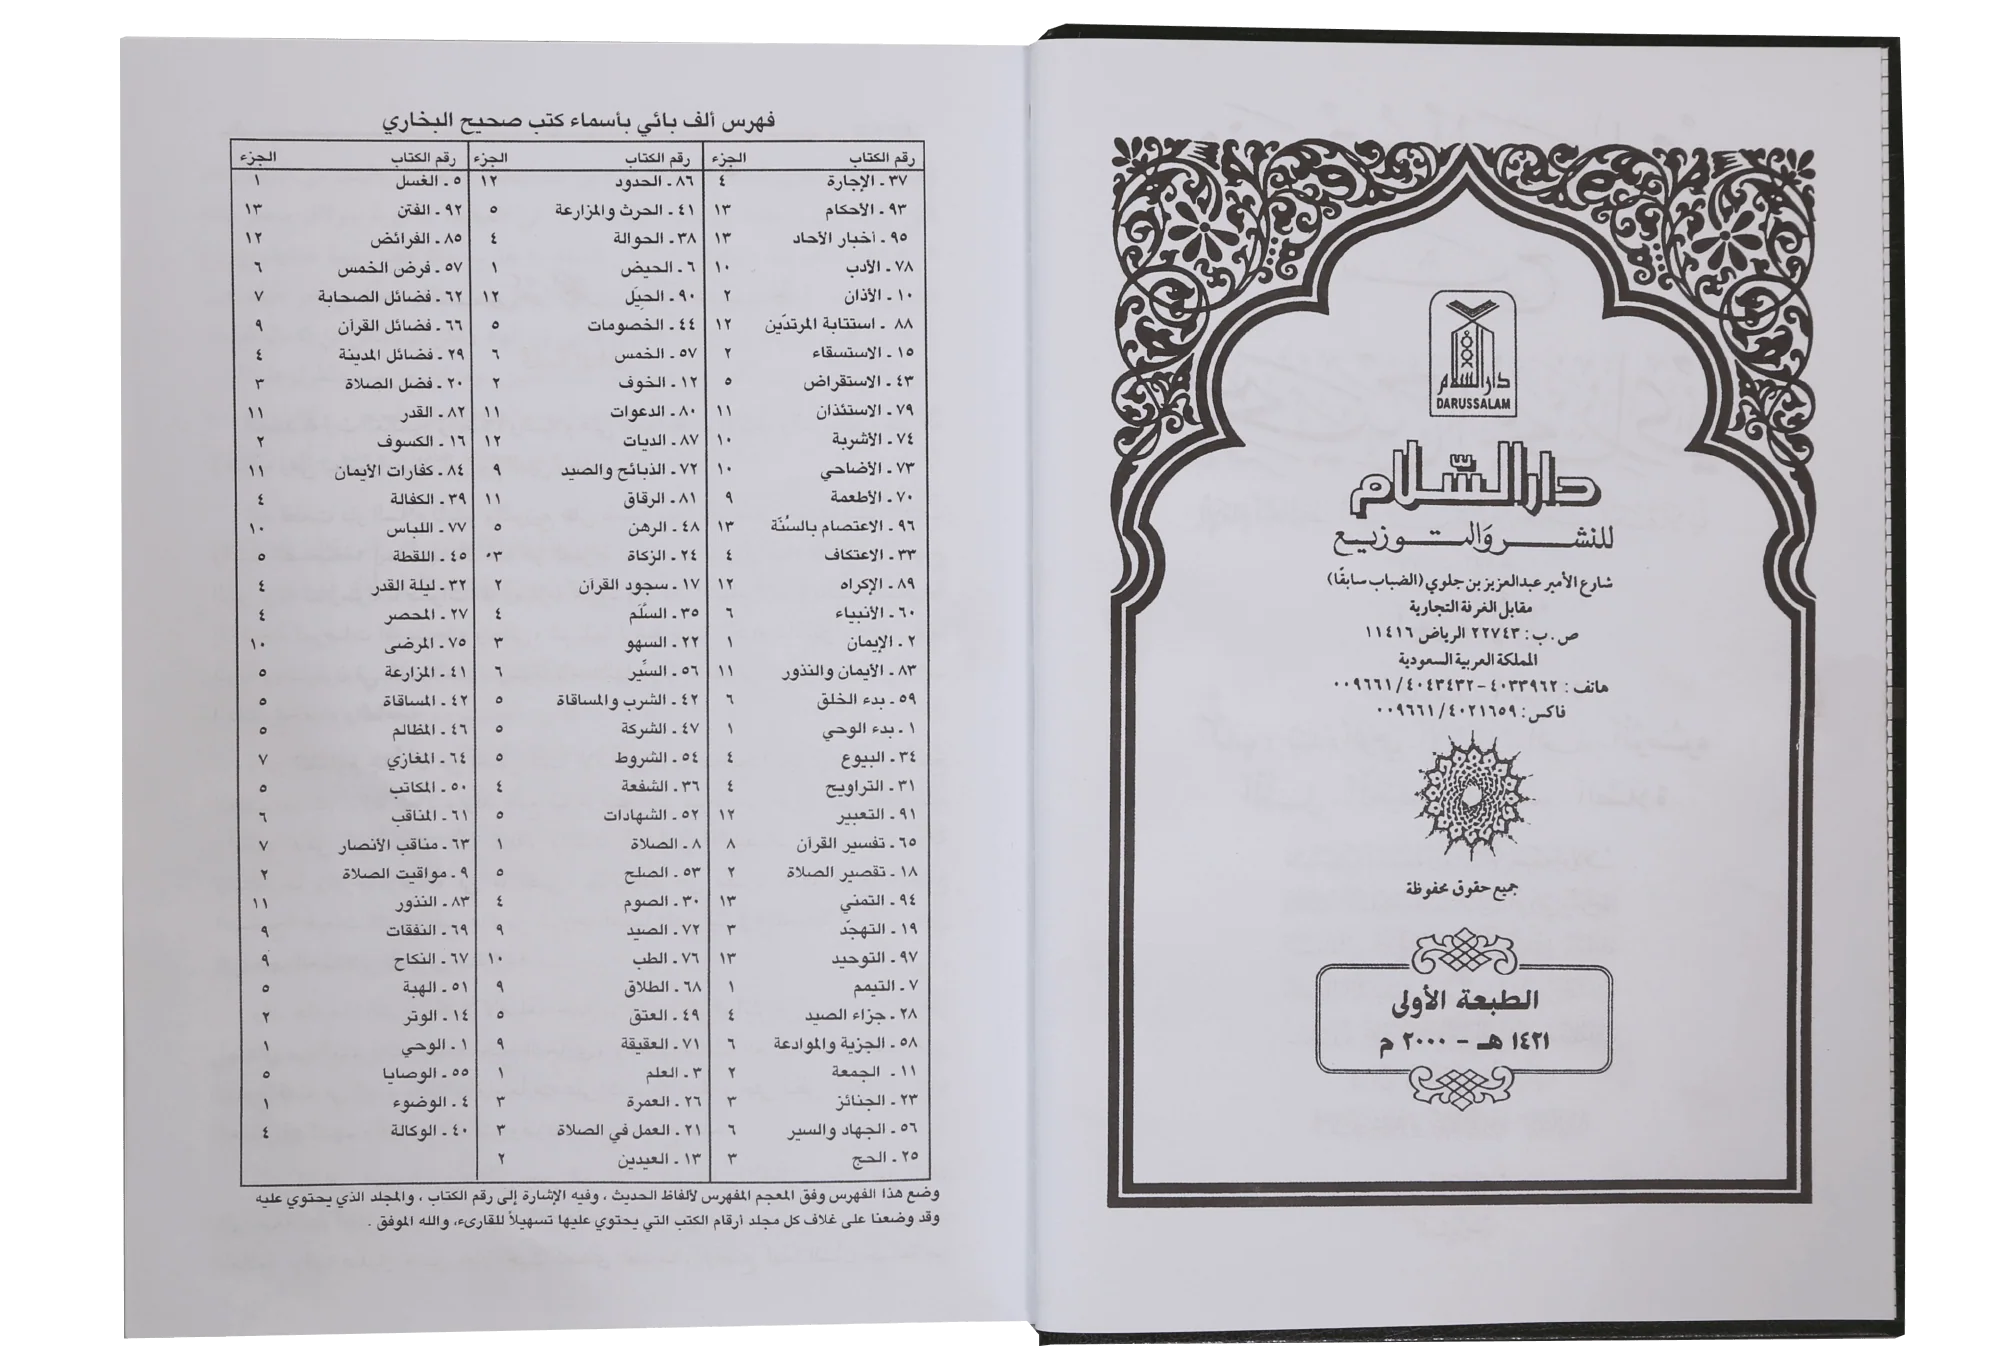 دار السلام
DARUSSALAM
دار السّلام
للنشر والتوزيع
شارع الأمير عبدالعزيز بن جلوي (الضباب سابقًا)
مقابل الغرفة التجارية
ص.ب: ٢٢٧٤٣ الرياض ١١٤١٦
المملكة العربية السعودية
هاتف: ٤٠٣٣٩٦٢-٠٠٩٦٦١/٤٠٤٣٤٣٢
فاكس: ٠٠٩٦٦١/٤٠٢١٦٥٩
جميع حقوق محفوظة
الطبعة الأولى
١٤٢١ هـ - ٢٠٠٠ م
فهرس ألف بائي بأسماء كتب صحيح البخاري
رقم الكتاب الجزء
٣٧ ـ الإجارة ٤
٩٣ ـ الأحكام ١٣
٩٥ ـ أخبار الآحاد ١٣
٧٨ ـ الأدب ١٠
١٠ ـ الأذان ٢
٨٨ ـ استتابة المرتدّين ١٢
١٥ ـ الاستسقاء ٢
٤٣ ـ الاستقراض ٥
٧٩ ـ الاستئذان ١١
٧٤ ـ الأشربة ١٠
٧٣ ـ الأضاحي ١٠
٧٠ ـ الأطعمة ٩
٩٦ ـ الاعتصام بالسُنّة ١٣
٣٣ ـ الاعتكاف ٤
٨٩ ـ الإكراه ١٢
٦٠ ـ الأنبياء ٦
٢ ـ الإيمان ١
٨٣ ـ الأيمان والنذور ١١
٥٩ ـ بدء الخلق ٦
١ ـ بدء الوحي ١
٣٤ ـ البيوع ٤
٣١ ـ التراويح ٤
٩١ ـ التعبير ١٢
٦٥ ـ تفسير القرآن ٨
١٨ ـ تقصير الصلاة ٢
٩٤ ـ التمني ١٣
١٩ ـ التهجّد ٣
٩٧ ـ التوحيد ١٣
٧ ـ التيمم ١
٢٨ ـ جزاء الصيد ٤
٥٨ ـ الجزية والموادعة ٦
١١ ـ الجمعة ٢
٢٣ ـ الجنائز ٣
٥٦ ـ الجهاد والسير ٦
٢٥ ـ الحج ٣
رقم الكتاب الجزء
٨٦ ـ الحدود ١٢
٤١ ـ الحرث والمزارعة ٥
٣٨ ـ الحوالة ٤
٦ ـ الحيض ١
٩٠ ـ الحِيَل ١٢
٤٤ ـ الخصومات ٥
٥٧ ـ الخمس ٦
١٢ ـ الخوف ٢
٨٠ ـ الدعوات ١١
٨٧ ـ الديات ١٢
٧٢ ـ الذبائح والصيد ٩
٨١ ـ الرقاق ١١
٤٨ ـ الرهن ٥
٢٤ ـ الزكاة ٣
١٧ ـ سجود القرآن ٢
٣٥ ـ السَّلَم ٤
٢٢ ـ السهو ٣
٥٦ ـ السِّيَر ٦
٤٢ ـ الشرب والمساقاة ٥
٤٧ ـ الشركة ٥
٥٤ ـ الشروط ٥
٣٦ ـ الشفعة ٤
٥٢ ـ الشهادات ٥
٨ ـ الصلاة ١
٥٣ ـ الصلح ٥
٣٠ ـ الصوم ٤
٧٢ ـ الصيد ٩
٧٦ ـ الطب ١٠
٦٨ ـ الطلاق ٩
٤٩ ـ العتق ٥
٧١ ـ العقيقة ٩
٣ ـ العلم ١
٢٦ ـ العمرة ٣
٢١ ـ العمل في الصلاة ٣
١٣ ـ العيدين ٢
رقم الكتاب الجزء
٥ ـ الغسل ١
٩٢ ـ الفتن ١٣
٨٥ ـ الفرائض ١٢
٥٧ ـ فرض الخمس ٦
٦٢ ـ فضائل الصحابة ٧
٦٦ ـ فضائل القرآن ٩
٢٩ ـ فضائل المدينة ٤
٢٠ ـ فضل الصلاة ٣
٨٢ ـ القدر ١١
١٦ ـ الكسوف ٢
٨٤ ـ كفارات الأيمان ١١
٣٩ ـ الكفالة ٤
٧٧ ـ اللباس ١٠
٤٥ ـ اللقطة ٥
٣٢ ـ ليلة القدر ٤
٢٧ ـ المحصر ٤
٧٥ ـ المرضى ١٠
٤١ ـ المزارعة ٥
٤٢ ـ المساقاة ٥
٤٦ ـ المظالم ٥
٦٤ ـ المغازي ٧
٥٠ ـ المكاتب ٥
٦١ ـ المناقب ٦
٦٣ ـ مناقب الأنصار ٧
٩ ـ مواقيت الصلاة ٢
٨٣ ـ النذور ١١
٦٩ ـ النفقات ٩
٦٧ ـ النكاح ٩
٥١ ـ الهبة ٥
١٤ ـ الوتر ٢
١ ـ الوحي ١
٥٥ ـ الوصايا ٥
٤ ـ الوضوء ١
٤٠ ـ الوكالة ٤
وضع هذا الفهرس وفق المعجم المفهرس لألفاظ الحديث ، وفيه الإشارة إلى رقم الكتاب ، والمجلد الذي يحتوي عليه
وقد وضعنا على غلاف كل مجلد أرقام الكتب التي يحتوي عليها تسهيلاً للقارىء، والله الموفق .